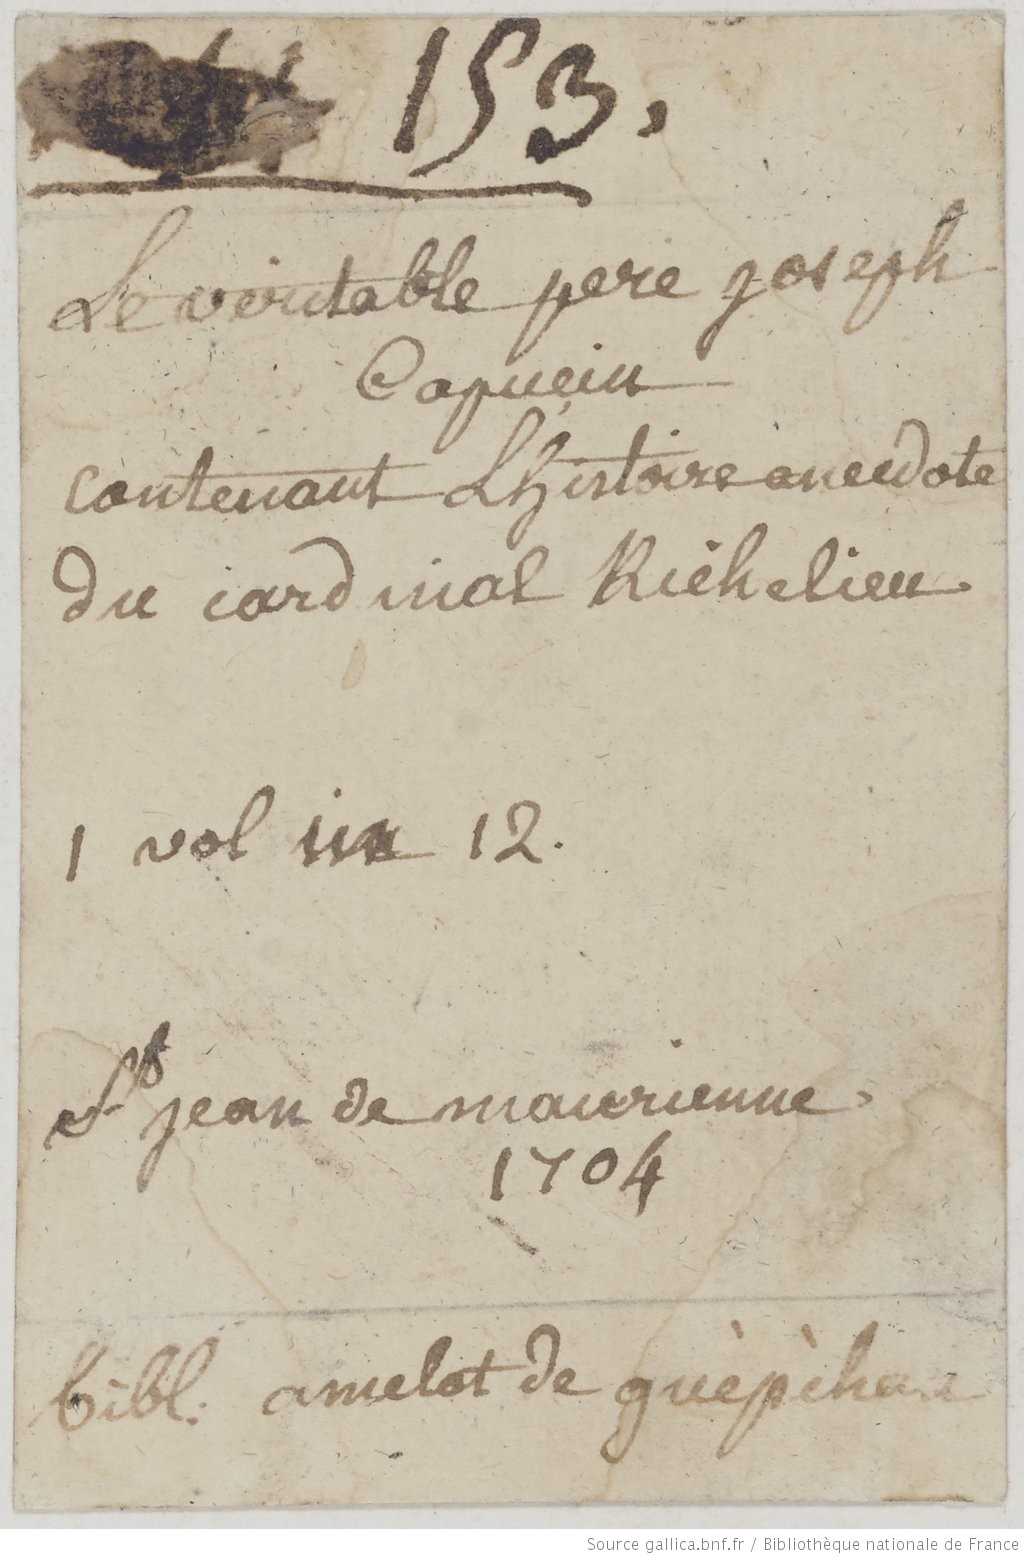 153.
Le veritable pere joseph
Capucin
contenant Lhistoire anecdote
du cardinal Richelieu.
1 vol in 12.
St jean de maurienne.
1704
bibl. amelot de
Source gallica.bnf.fr / Bibliothèque nationale de France